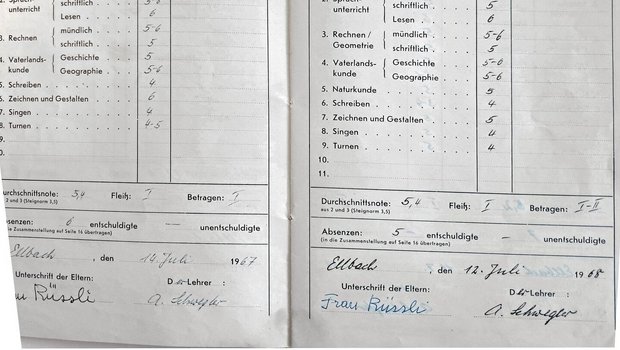 unterricht schriftlich 5
Lesen 6
3. Rechnen mündlich 5-6
schriftlich 5
4. Vaterlands- Geschichte 5
kunde Geographie 5-6
5. Schreiben 4
6. Zeichnen und Gestalten 6
7. Singen 4
8. Turnen 4-5
9.
10.
Durchschnittsnote: 5,4 Fleiß: I Betragen: I
aus 2 und 3 (Steignorm 3,5)
Absenzen: 6 entschuldigte — unentschuldigte
(in die Zusammenstellung auf Seite 16 übertragen)
Ellbach, den 14. Juli 1967
Unterschrift der Eltern: Der Lehrer:
Rüssli A. Schwegler
unterricht schriftlich 5
Lesen 5
3. Rechnen / mündlich 5-6
Geometrie schriftlich 5
4. Vaterlands- Geschichte 5-6
kunde Geographie 5-6
5. Naturkunde 5
6. Schreiben 4
7. Zeichnen und Gestalten 5
8. Singen 4
9. Turnen 4
10.
11.
Durchschnittsnote: 5,4 Fleiß: I Betragen: I-II
aus 2 und 3 (Steignorm 3,5)
Absenzen: 5 entschuldigte — unentschuldigte
(in die Zusammenstellung auf Seite 16 übertragen)
Ellbach, den 12. Juli 1968
Unterschrift der Eltern: Der Lehrer:
Frau Rüssli A. Schwegler